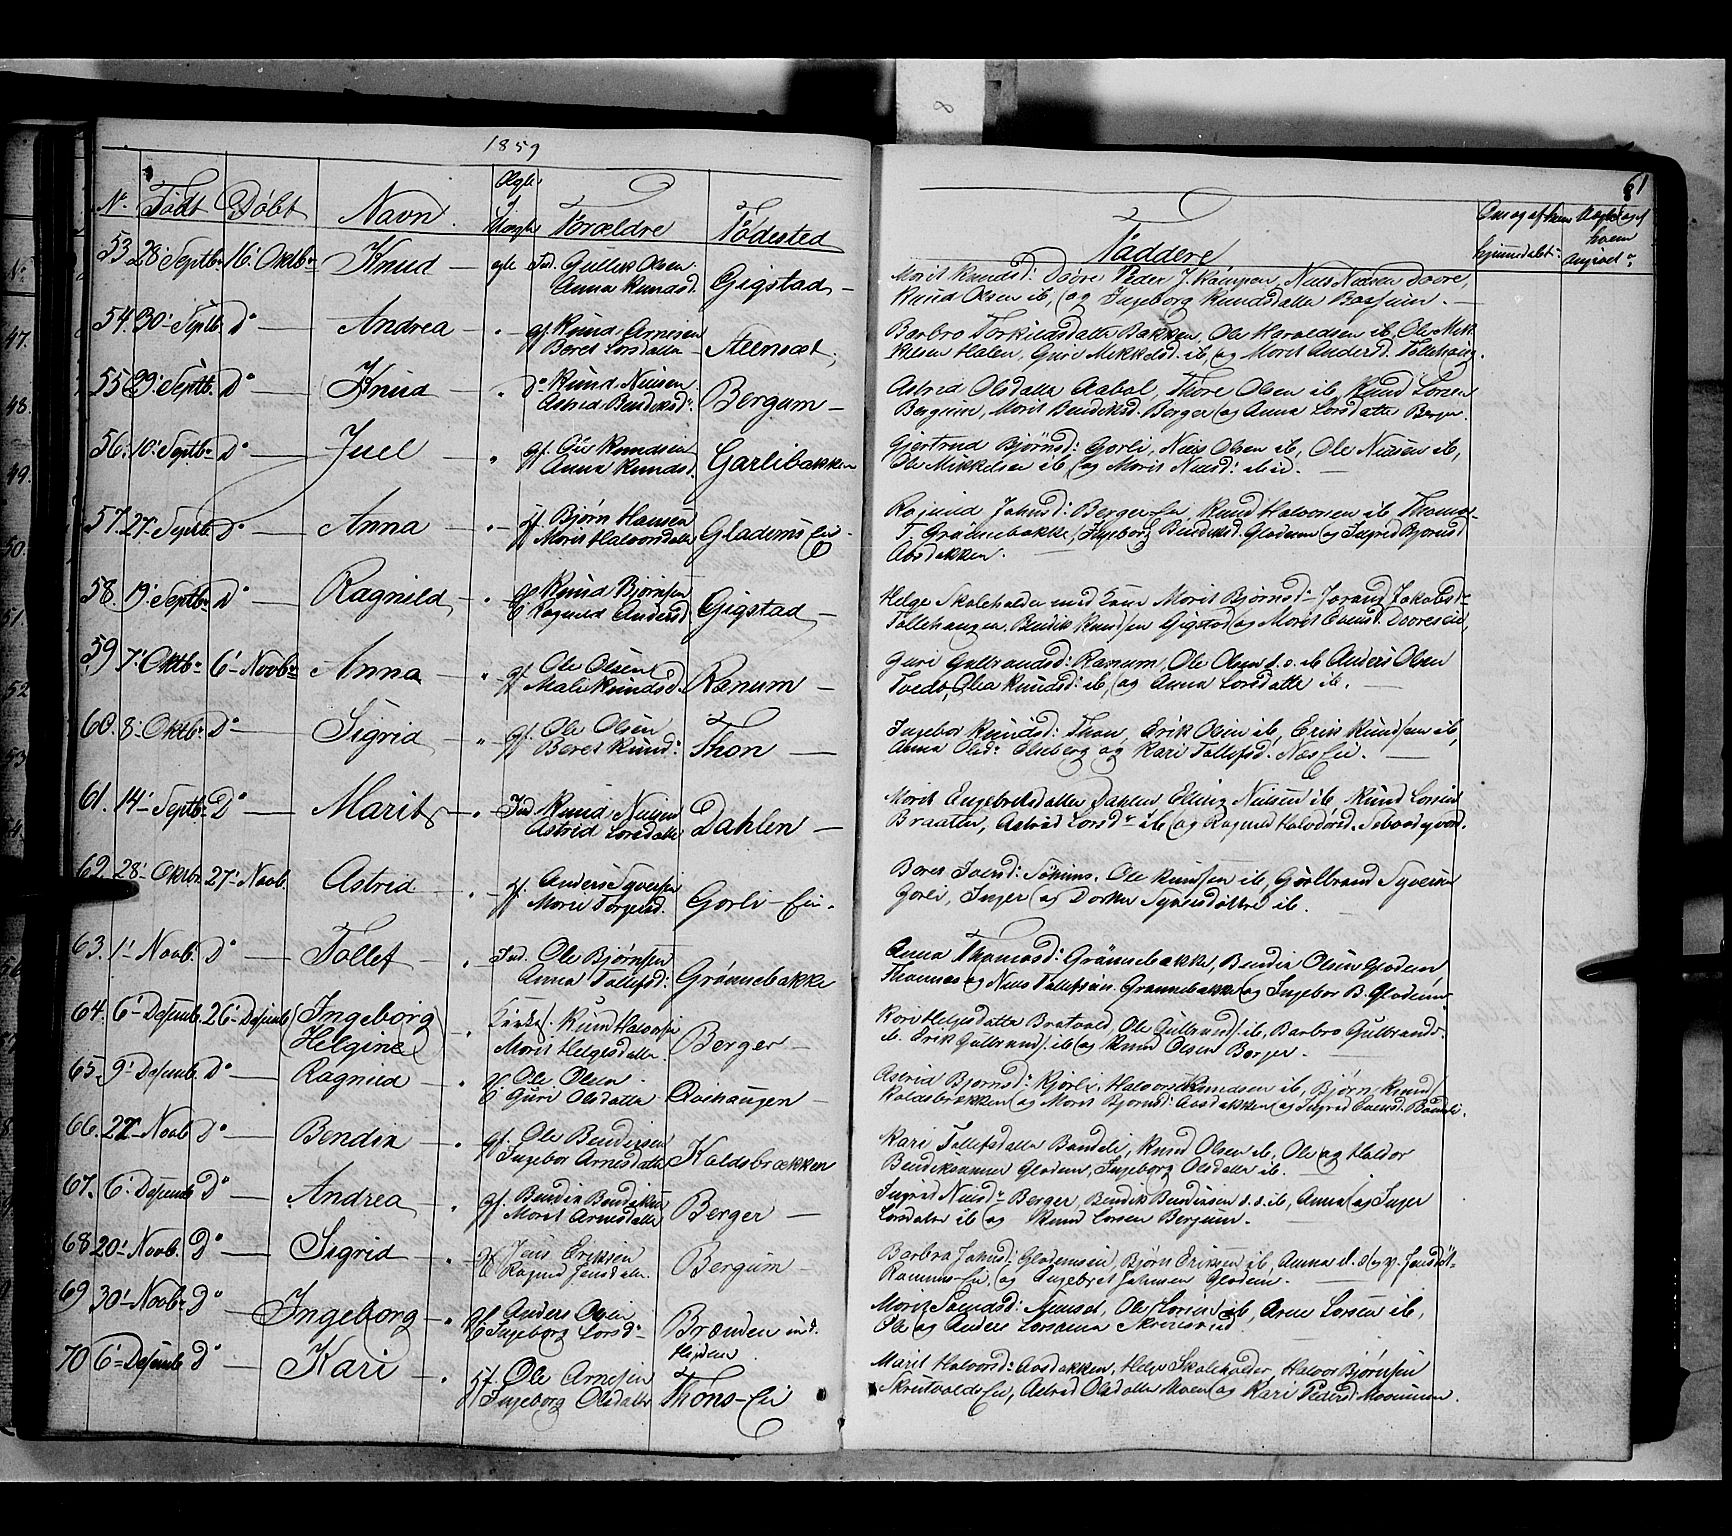 8
1859
61
No. Født Døbt Navn Ægte Uægte Forældre Fødested Faddere
Om og af hvem hjemmedøbt
53 28' Septbr 16' Oktbr Knud ægte Ind. Gulick Olsen Gigstad
Anna Knudsd.
Marit Knudsd: Døvre Peder J. Kampen, Niels Nielsen Døvre,
Knud Olsen ib, og Ingeborg Knudsdatter
54 30' Septb Do Andrea " gf Knud Arnesen
Beret Larsdatter Steensæt
Barbro Torkildsdatter Bakken, Ole Haraldsen ib, Ole Mik-
kelsen Halen, Guri Mikkelsd. ib og Marit Andersd. Tollehaug.
55 29' Septb. Do Knud " Do Knud Nielsen
Astrid Bendiksd: Bergum
Astrid Olsdatter Aabøl, Thore Olsen ib, Knud Larsen
Bergum, Marit Bendiksd. Berger og Anna Larsdatter Berger.
56. 10' Septbr Do Juel " gf. Ole Knudsen
Anna Knudsd. Garlibakken
Gjertrud Bjørnsd: Gorli, Niels Olsen ib, Ole Nielsen ib,
Ole Mikkelsen ib og Marit Nielsd: ibid.
57. 27' Septb Do Anna " gf. Bjørn Hansen
Marit Halvorsdatter Gladems Eie
Ragnild Johnsd: Berger-Eie Knud Halvorsen ib, Thomas
T. Grønnebakke, Ingeborg Bendiksd. Glademe og Ingrid Bjørnsd
Aasbakken.
58. 19' Septbr Do Ragnild " gf Knud Bjørnsen
Ragnild Andersd. Gigstad
Helge Skoleholder med Kone Marit Bjørnsd: Jorand Jakobsd.
Tollehaugen, Bendik Knudsen Gigstad og Marit Evensd. Dovreeie,
59 7' Oktbr 6' Novbr Anna " gf Ole Olsen
Mali Knudsd. Ranum
Guri Gulbrandsd: Ranum, Ole Olsen d. o. ib Anders Olsen
Tvedt, Olea Knudsd: ib, og Anna Larsdatter ib.
60. 8' Oktbr Do Sigrid " gf Ole Olsen
Beret Knud: Thon
Ingebor Knudsd: Thon, Erik Olsen ib, Erik Knudsen ib,
Anna Olsd: Elseberg og Kari Tollefsd. Næs Eie.
61. 14' Septbr Do Marit " Ind. Knud Nielsen
Astrid Larsdatter Dahlen
Marit Engebretsdatter Dahlen Elling Nielsen ib, Knud Larsen
Braaten, Astrid Larsdr ib og Ragnild Halvorsd.
62. 28' Oktbr. 27' Novb. Astrid " gf. Anders Syversen
Marit Torgersd. Gorli-Eie.
Beret Iversd: Ole Knudsen ib, Gulbrand Syversen
Gorli, Inger og Dorthe Syversdøttre ib.
63. 1' Novb. Do Tollef " Ind. Ole Bjørnsen
Anna Tollefsd: Grønnebakke
Anna Thomasd: Grønnebakke, Bendik Olsen Gladem
Thomas og Niels Tollefsen Grønnebakke og Ingebor B. Gladem
64. 6' Desemb. 26' Desemb Ingeborg " Knud Halvorsen
Helgine Marit Helgesdatter Berger
Kari Helgesdatter Bratvold, Ole Gulbrands. ib, Barbro Gulbrandsd.
ib. Erik Gulbrands. ib og Knud Olsen Berger.
65. 9' Desemb. Do Ragnild " gf Ole Olsen
Guri Olsdatter Qvishaugen
Astrid Bjørnsd: Kjørli, Halvor Knudsen ib, Bjørn Knuds
Koldsbrækken og Marit Bjørnsd: Aasbakken og Ingrid Evensd. Bandeli.
66. 22' Novb Do Bendik " gf. Ole Bendiksen
Ingebor Arnesdatter Koldsbrækken
Kari Tollefsdatter Bandeli, Knud Olsen ib, Ole og Haldor
Bendiksønner Glademe, Ingeborg Olsdatter ib.
67. 6' Desemb Do Andrea " gf. Bendik Bendiksen
Marit Arnesdatter Berger
Ingrid Nielsdr Berger, Bendik Bendiksen d. o. ib, Anna og Inger
Larsdatter ib og Knud Larsen Bergum.
68 20' Novb. Do Sigrid " gf Jens Eriksen
Ragnild Jensdatter. Bergum
Barbra Johnsd: Glademseie, Bjørn Eriksen ib, Anna d. æ. og y. Jensdøt-
Ranums-Eie, og Engebret Johnsen Glademe.
69 30' Novbr Do Ingeborg " gf Anders Olsen
Ingeborg Larsd: Brænden ind.
Marit Ole Larsen ib, Arne Larsen ib,
Ole og Anders
70 6' Desemb Do Kari " gf. Ole Arnesen
Ingeborg Olsdatter Thons-Eie
Marit Halvorsd: Aasbakken, Helge Skoleholder, Halvor Bjørnsen
Skrutvolds Eie, Astrid Olsdatter Moen og Kari Pedersd.